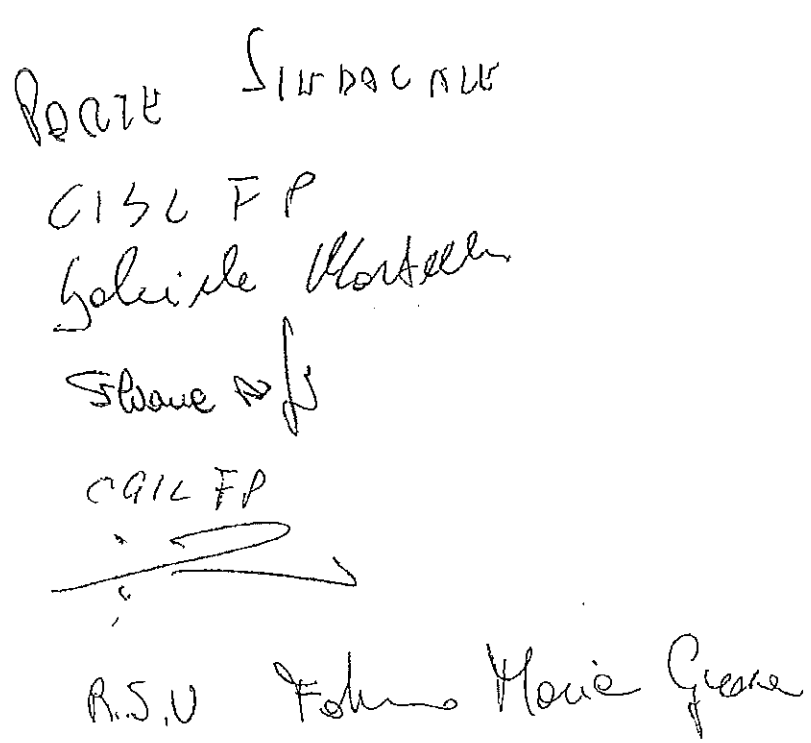 PARTE SINDACALE
CISL FP
Gabriele Martelli
Silvana
CGIL FP
R.S.U Maria